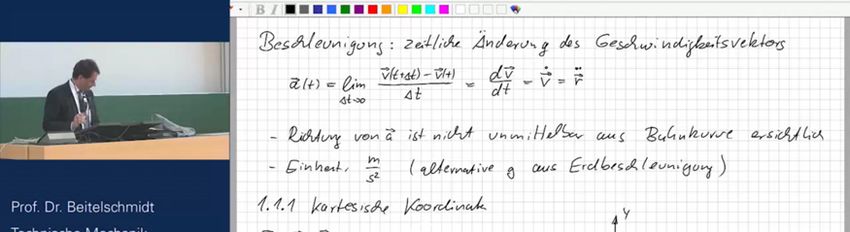 B I
Beschleunigung: zeitliche Änderung des Geschwindigkeitsvektors
a⃗(t) = lim Δt→0 (v⃗(t+Δt) − v⃗(t)) / Δt = dv⃗/dt = v⃗̇ = r⃗̈
- Richtung von a⃗ ist nicht unmittelbar aus Bahnkurve ersichtlich
- Einheit: m/s² (alternative g aus Erdbeschleunigung)
1.1.1 Kartesische Koordinate
y
Prof. Dr. Beitelschmidt
Technische Mechanik